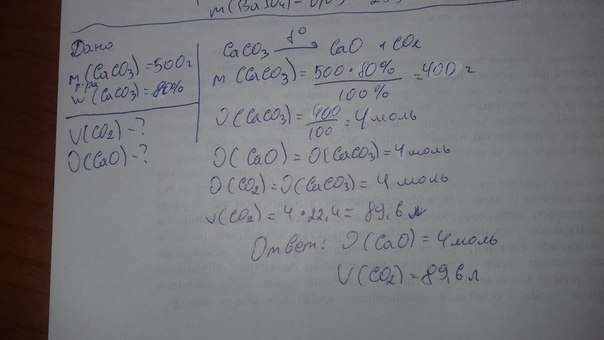 m(BaSO4) =
Дано
m (CaCO3) = 500г
w (CaCO3) = 80%
V(CO2) - ?
υ(CaO) - ?
CaCO3 t° → CaO + CO2
m (CaCO3) = 500 * 80% / 100% = 400 г
υ(CaCO3) = 400 / 100 = 4 моль
υ(CaO) = υ(CaCO3) = 4 моль
υ(CO2) = υ(CaCO3) = 4 моль
v(CO2) = 4 * 22,4 = 89,6 л
Ответ: υ(CaO) = 4 моль
V(CO2) = 89,6 л